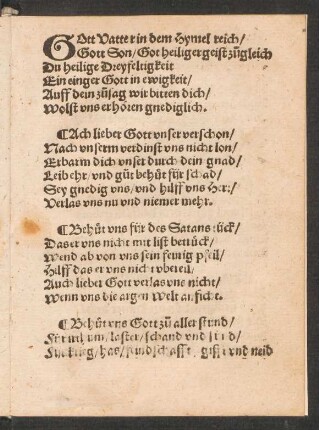 GOtt Vatter in dem Hymel reich/
Gott Son/ Got heiliger geist zůgleich
Du heilige Dreyfeltigkeit
Ein einger Gott in ewigkeit/
Auff dein zůsag wir bitten dich/
Wolst vns erhören gnediglich.
¶ Ach lieber Gott vnser verschon/
Nach vnserm verdinst vns nicht lon/
Erbarm dich vnser durch dein gnad/
Leib ehr/ vnd gůt behüt für schad/
Sey gnedig vns/ vnd hilff vns Herr/
Verlas vns nu vnd niemer mehr.
¶ Behüt vns für des Satans tück/
Das er vns nicht mit list berück/
Wend ab von vns sein feurig pfeil/
Hilff das er vns nicht vbereil/
Auch lieber Gott verlas vns nicht/
Wenn vns die argen Welt anficht.
¶ Behüt vns Gott zů aller stund/
Für laster/ schand vnd sünd/
Für krieg/ has/ feindschafft/ gifft vnd neid